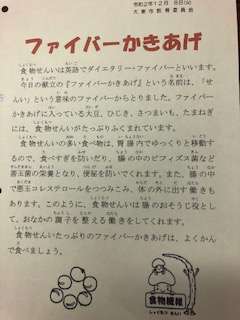 令和2年12月 8日(火)
大東市教育委員会
ファイバーかきあげ
食物せんいは英語でダイエタリー・ファイバーといいます。
今日の献立の『ファイバーかきあげ』という名前は、「せ
んい」という意味のファイバーからとりました。ファイバー
かきあげに入っている大豆、ひじき、さつまいも、たまねぎ
には、食物せんいがたっぷりふくまれています。
食物せんいの多い食べ物は、胃腸内でゆっくりと移動す
るので、食べすぎを防いだり、腸の中のビフィズス菌など
善玉菌の栄養となり、便秘を防いでくれます。また、腸の中
で悪玉コレステロールをつつみこみ、体の外に出す働きも
あります。このように、食物せんいは腸のおそうじ役とし
て、おなかの調子を整える働きをしてくれます。
食物せんいたっぷりのファイバーかきあげは、よくかん
で食べましょう。
食物繊維